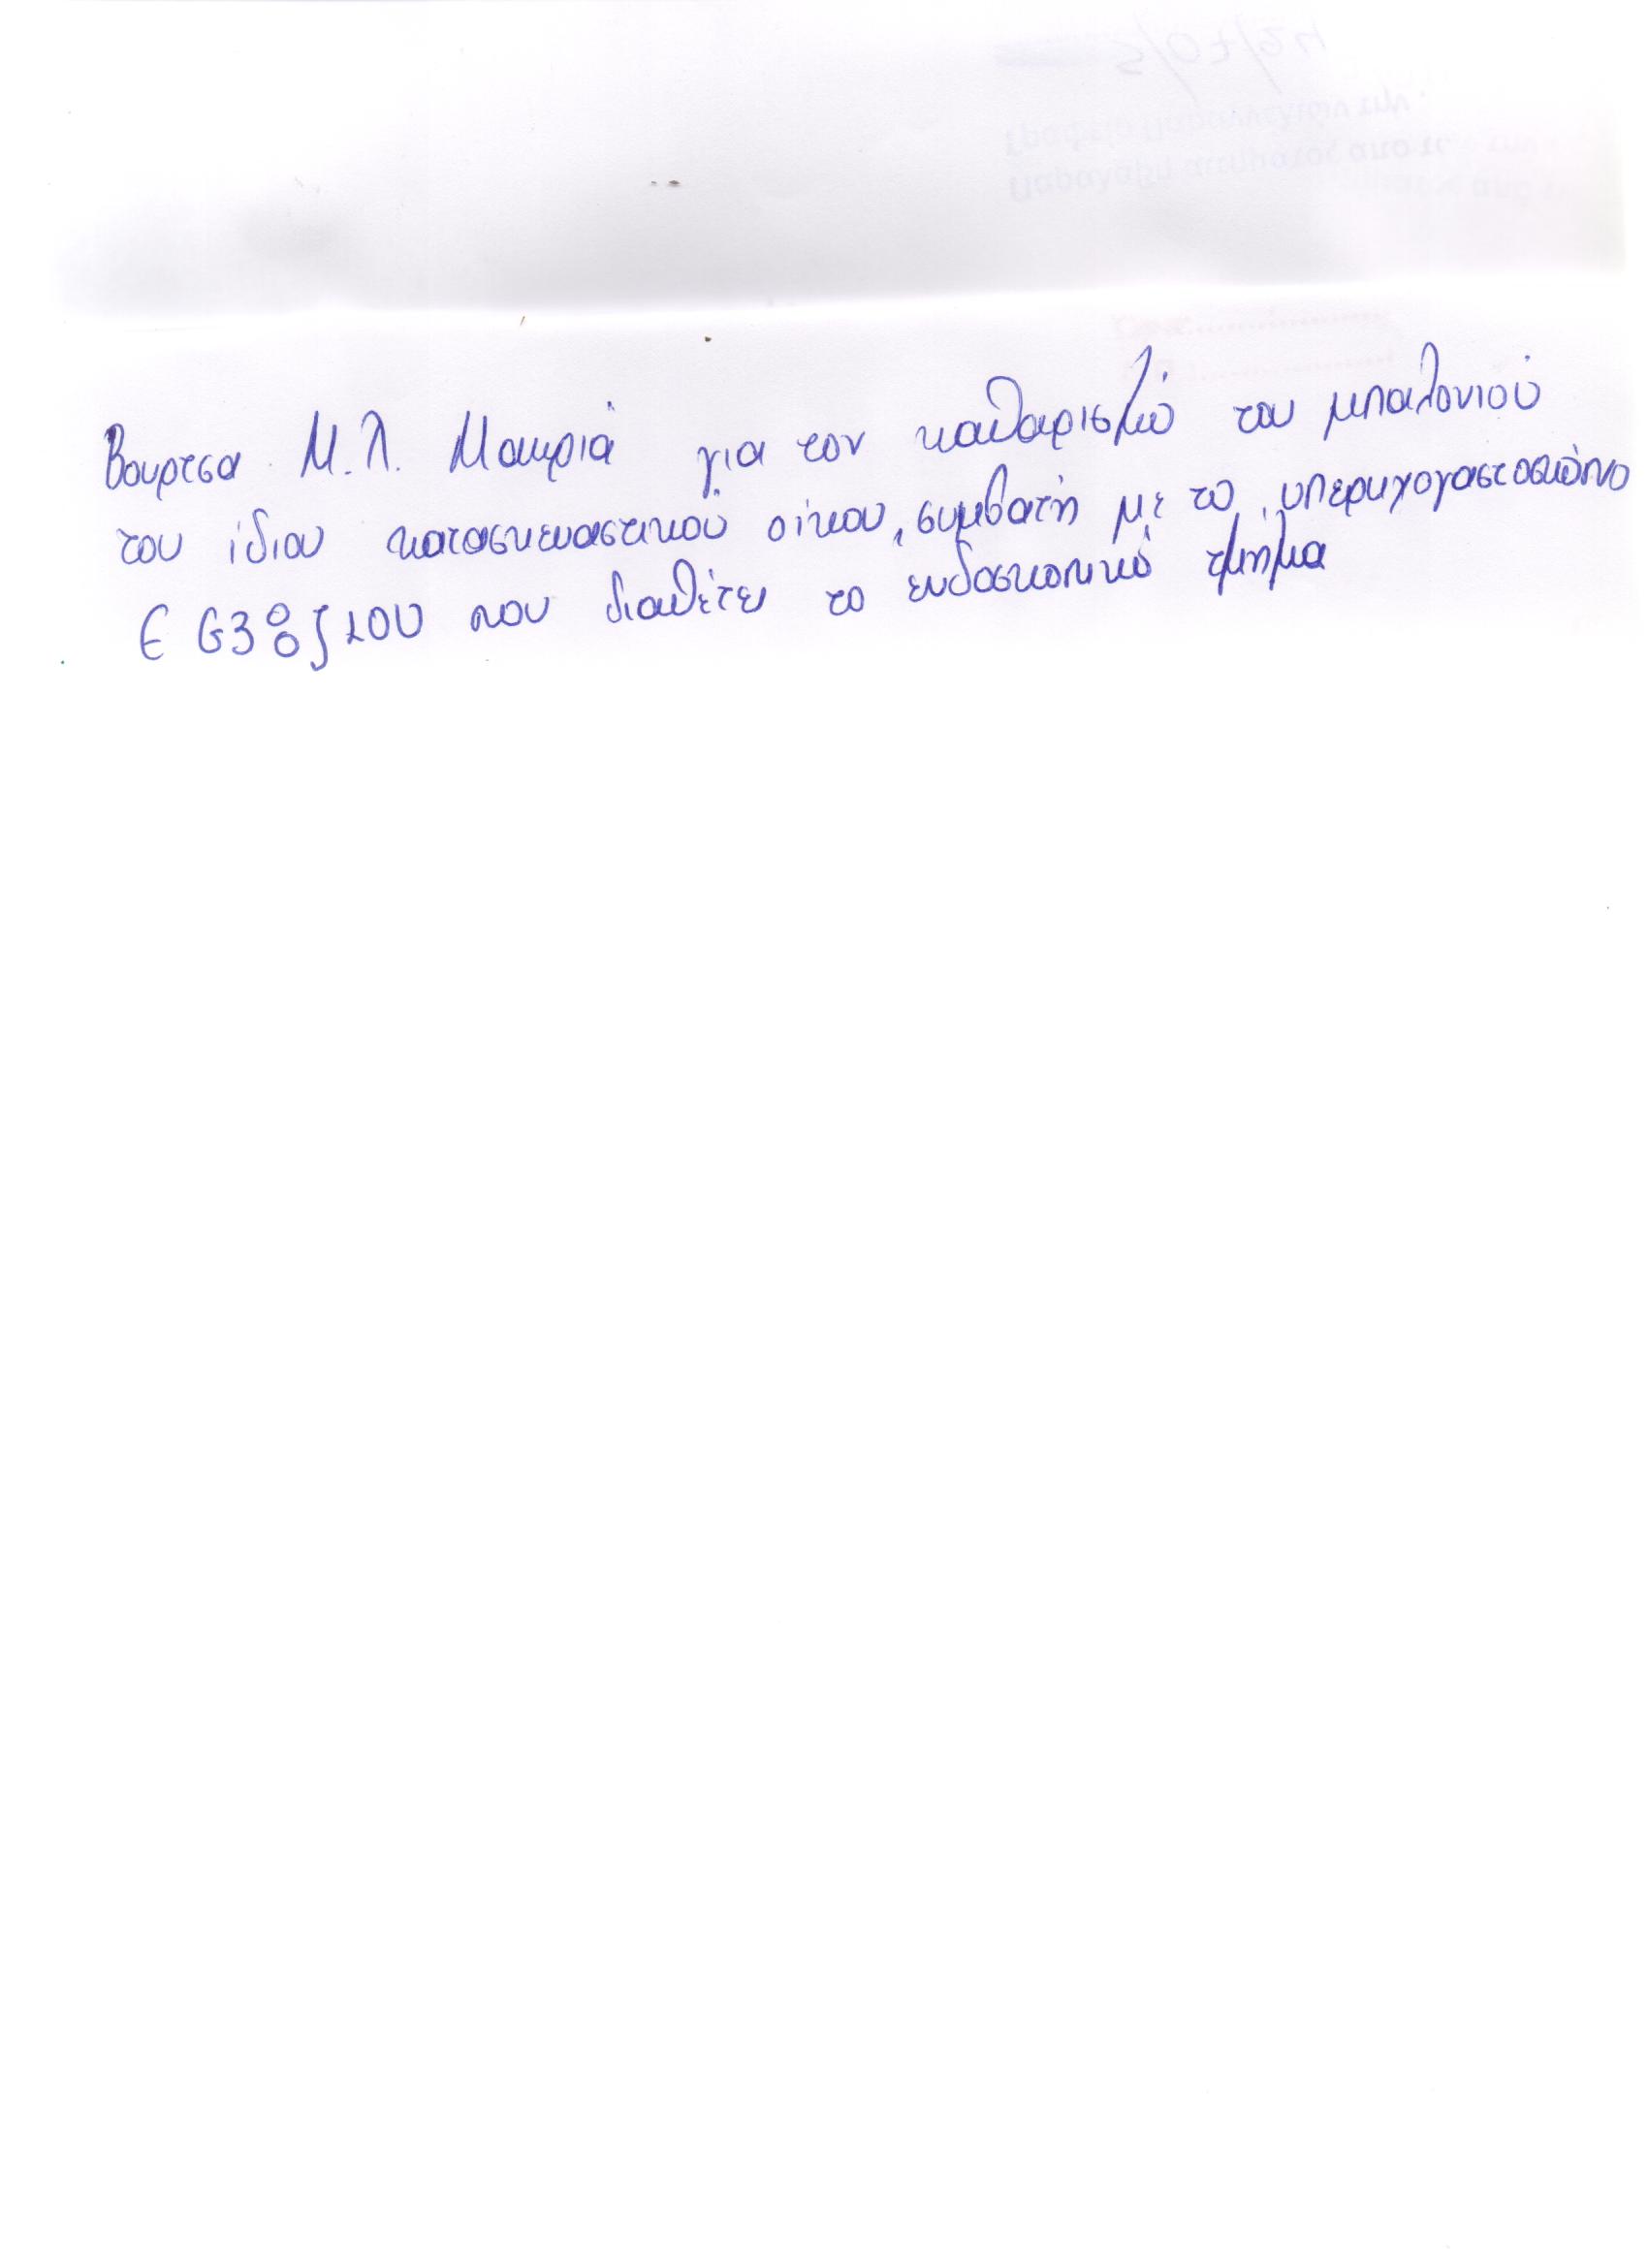 Βουρτσα Μ.Λ. Μακριά για τον καθαρισμό του μπαλονιού
του ίδιου κατασκευαστικού οίκου, συμβατή με το υπερηχογαστοσκόπιο
EG38 J10U που διαθέτει το ενδοσκοπικό τμήμα